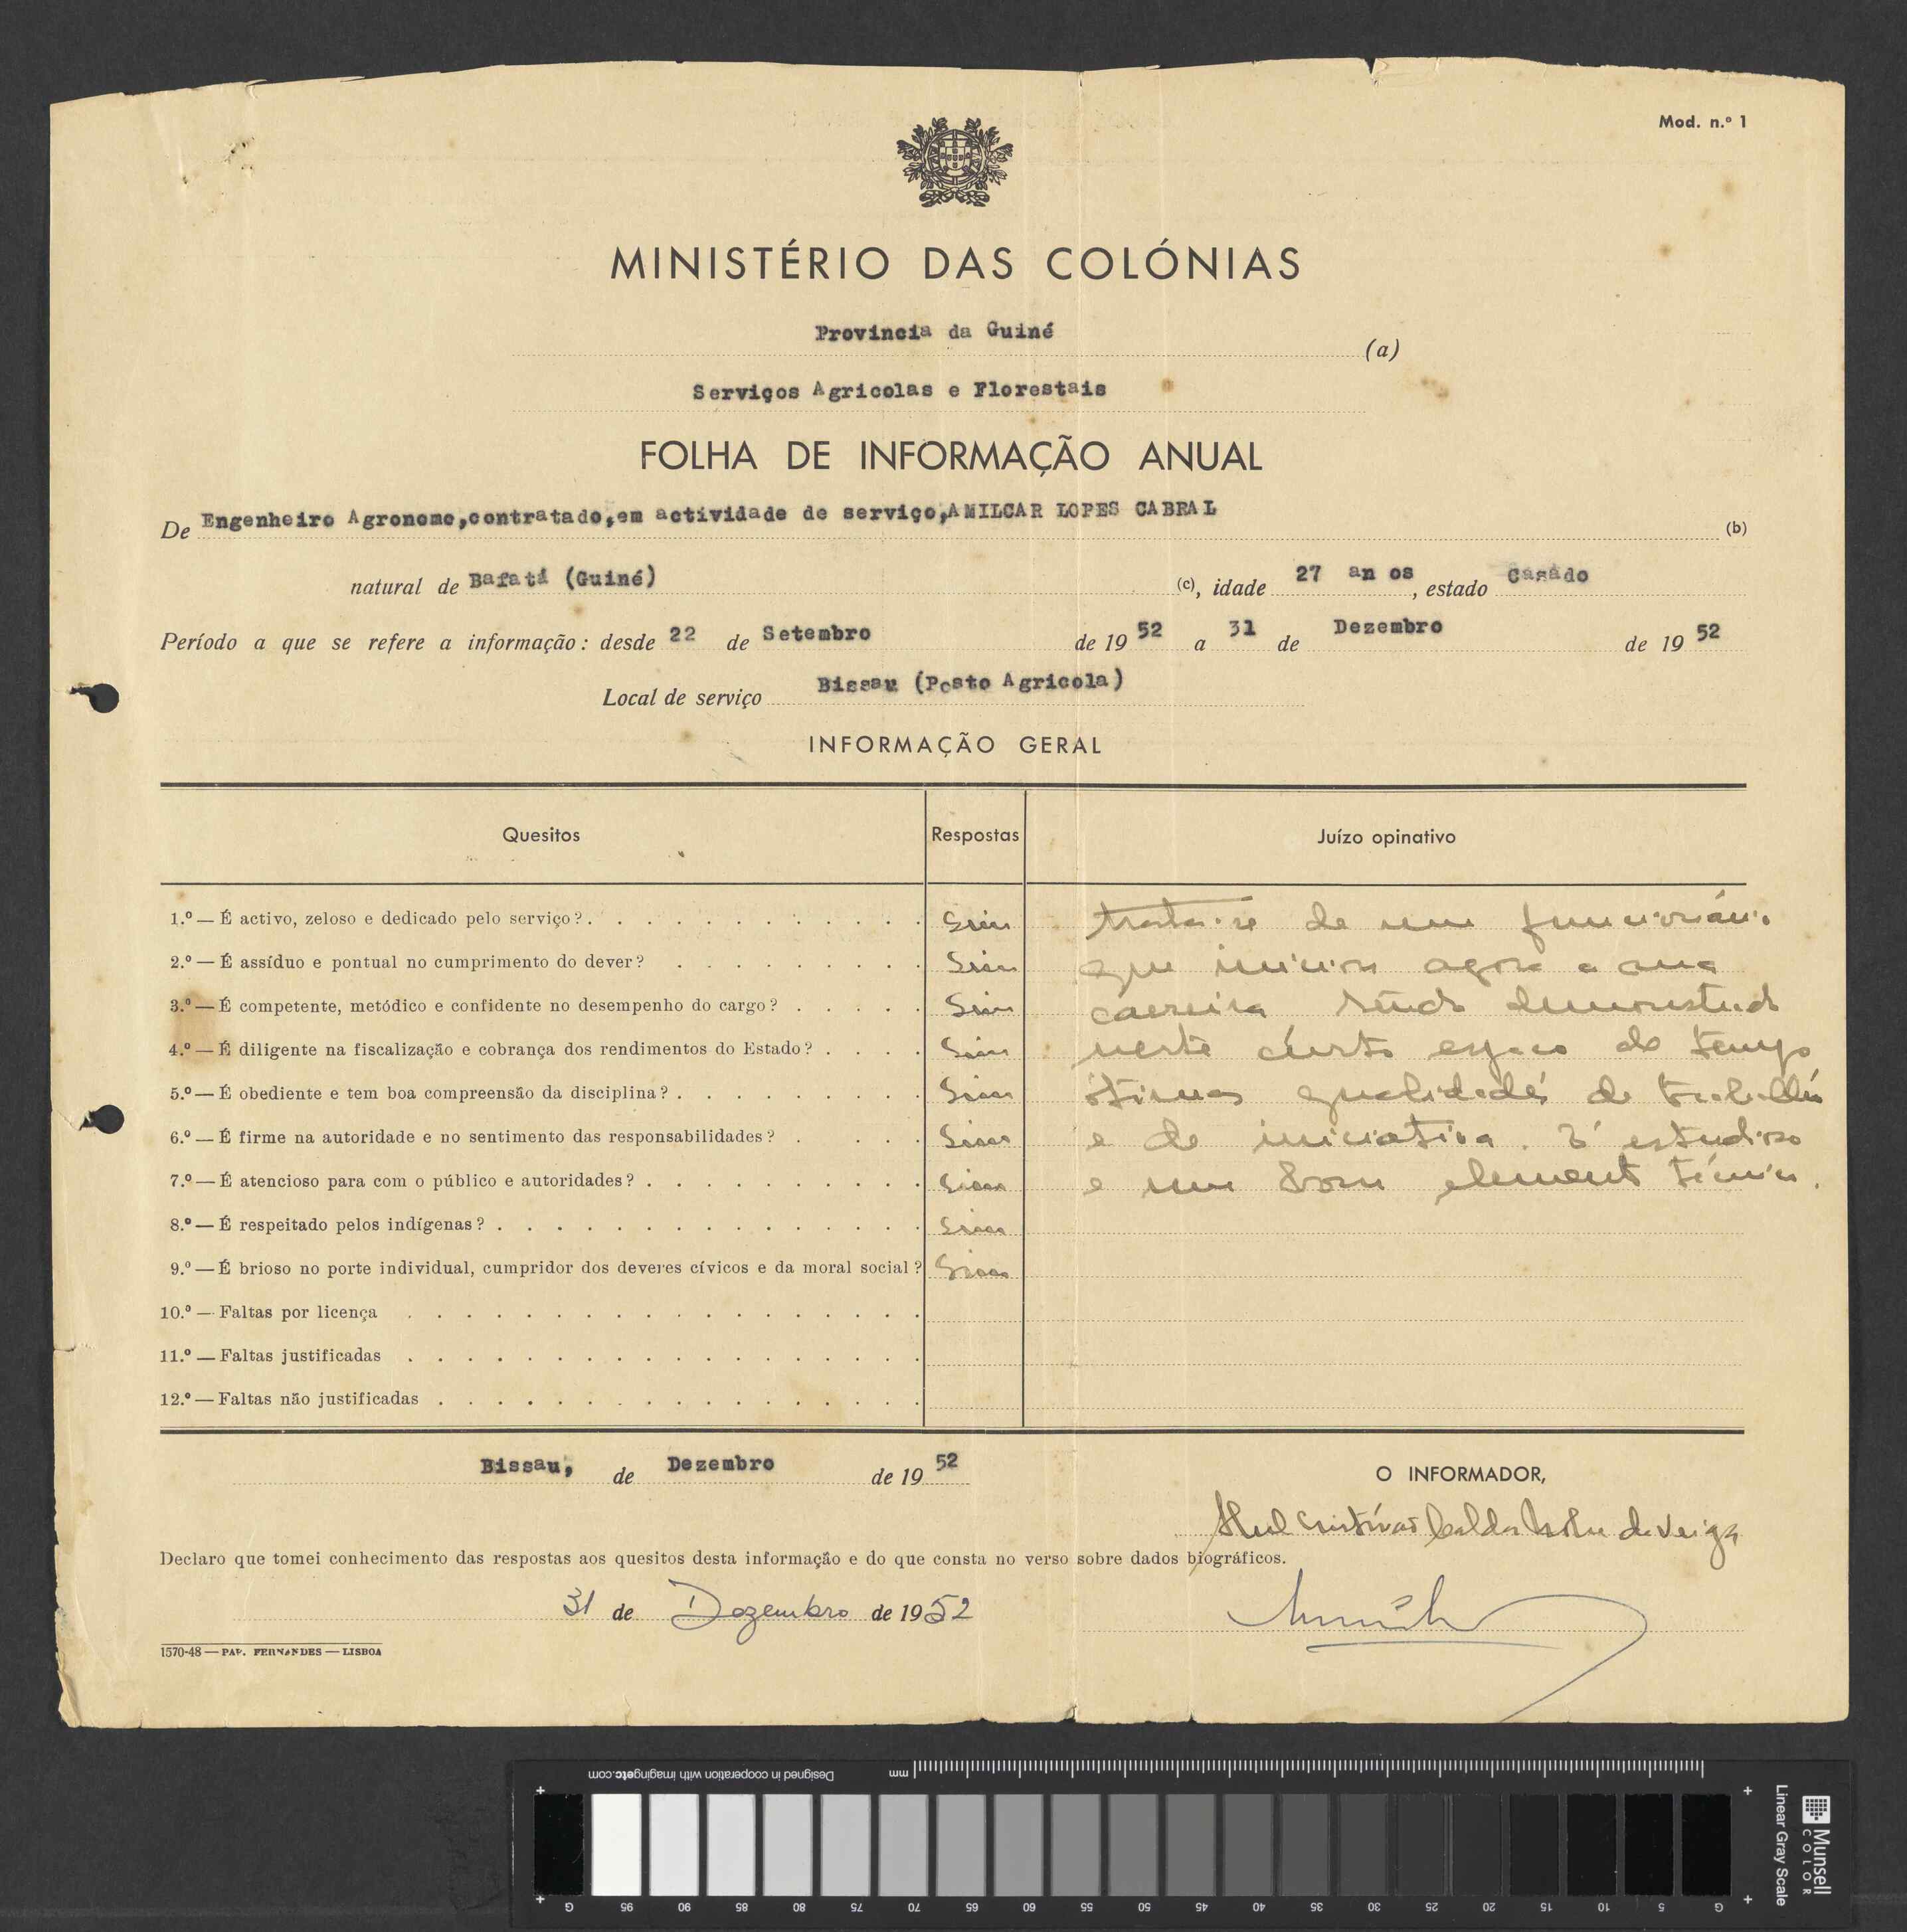 Mod. n.º 1
MINISTÉRIO DAS COLÓNIAS
Provincia da Guiné (a)
Serviços Agricolas e Florestais
FOLHA DE INFORMAÇÃO ANUAL
De Engenheiro Agronomo,contratado,em actividade de serviço,AMILCAR LOPES CABRAL (b)
natural de Bafatá (Guiné) (c), idade 27 anos, estado Casado
Período a que se refere a informação: desde 22 de Setembro de 1952 a 31 de Dezembro de 1952
Local de serviço Bissau (Posto Agricola)
INFORMAÇÃO GERAL
Quesitos Respostas Juízo opinativo
1.º — É activo, zeloso e dedicado pelo serviço? Sim trata-se de um funcionário
2.º — É assíduo e pontual no cumprimento do dever? Sim que iniciou agora a sua
3.º — É competente, metódico e confidente no desempenho do cargo? Sim carreira tendo demonstrado
4.º — É diligente na fiscalização e cobrança dos rendimentos do Estado? Sim neste curto espaço de tempo
5.º — É obediente e tem boa compreensão da disciplina? Sim ótimas qualidades de trabalho
6.º — É firme na autoridade e no sentimento das responsabilidades? Sim e de iniciativa. É estudioso
7.º — É atencioso para com o público e autoridades? Sim e um bom elemento técnico.
8.º — É respeitado pelos indígenas? Sim
9.º — É brioso no porte individual, cumpridor dos deveres cívicos e da moral social? Sim
10.º — Faltas por licença
11.º — Faltas justificadas
12.º — Faltas não justificadas
Bissau, de Dezembro de 1952
O INFORMADOR,
Declaro que tomei conhecimento das respostas aos quesitos desta informação e do que consta no verso sobre dados biográficos.
31 de Dezembro de 1952
1570-48 — PAP. FERNANDES — LISBOA
Designed in cooperation with imagingetc.com
mm
Munsell
COLOR
Linear Gray Scale
G 95 90 85 80 75 70 65 60 55 50 45 40 35 30 25 20 15 10 5 G